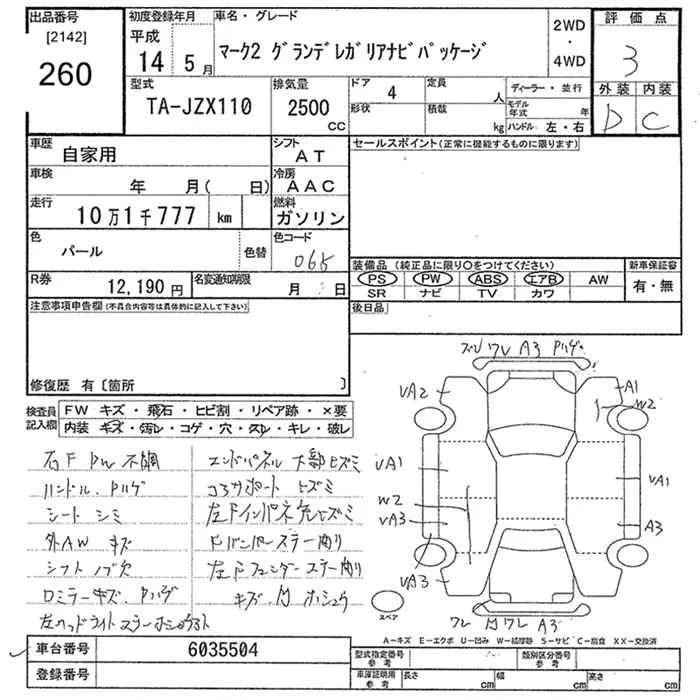 出品番号
[2142]
260
初度登録年月
平成
14 5月
車名・グレード
マーク2 グランデレガリアナビパッケージ
2WD
・
4WD
評価点
3
外装 内装
D C
型式
TA-JZX110
排気量
2500
CC
ドア 4
形状
定員
人
積載
kg
ディーラー・並行
モデル年式 年
ハンドル 左・右
車歴
自家用
シフト
AT
車検
年 月( 日)
冷房
AAC
走行
10万1千777 km
燃料
ガソリン
色
パール
色替
色コード
065
R券
12,190円
名変通知期限
月 日
セールスポイント(正常に機能するものに限ります)
装備品 (純正品に限り○をつけてください)
PS PW ABS エアB AW
SR ナビ TV カワ
新車保証書
有・無
後日品
注意事項申告欄(不具合内容等は具体的に記入して下さい)
修復歴 有〔箇所 〕
検査員記入欄
FW キズ・飛石・ヒビ割・リペア跡・×要
内装 キズ・汚レ・コゲ・穴・スレ・キレ・破レ
右F PW 不調
ハンドル.ハゲ
シート シミ
外AW キズ
シフトノブ欠
エンドパネル
コアサポート ヒズミ
Fバンパーステー曲り
左Fフェンダーステー曲り
左ヘッドライトステー
ワレ A3
VA2
A1
W2
VA1
VA1
W2
VA3
A3
VA3
ワレ A3
スペア
A−キズ E−エクボ U−凹み W−補修跡 S−サビ C−腐食 XX−交換済
車台番号 6035504
登録番号
型式指定番号
参考
類別区分番号
参考
車庫証明用
参考
長さ cm
幅 cm
高さ cm